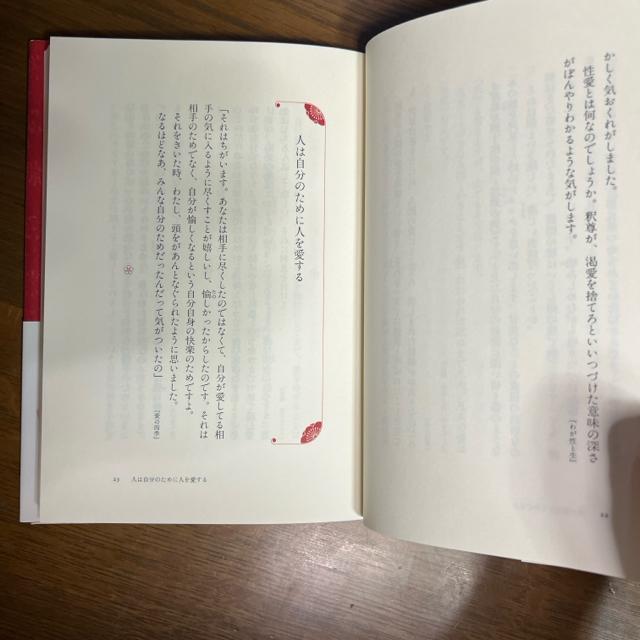 かしく気おくれがしました。
性愛とは何なのでしょうか。釈尊が、渇愛を捨てろといいつづけた意味の深さ
がぼんやりわかるような気がします。
『わが性と生』
22
人は自分のために人を愛する
「それはちがいます。あなたは相手に尽くしたのではなくて、自分が愛してる相
手の気に入るように尽くすことが嬉しいし、愉しかったからしたのです。それは
相手のためでなく、自分が愉しくなるという自分自身の快楽のためですよ。
それをきいた時、わたし、頭をがあんとなぐられたように思いました。
なるほどなあ、みんな自分のためだったんだって気がついたの」
『愛の四季』
23 人は自分のために人を愛する